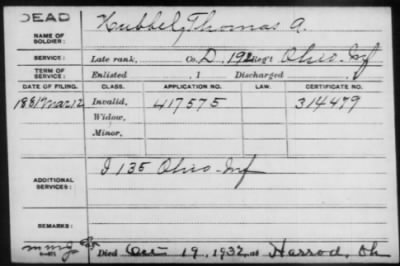 DEAD
NAME OF SOLDIER: Hubbel, Thomas A.
SERVICE: Late rank, Co. D, 192 Reg't Ohio Inf
TERM OF SERVICE: Enlisted , 1 Discharged
DATE OF FILING. CLASS. APPLICATION NO. LAW. CERTIFICATE NO.
1881 Mar 12 Invalid, 417575 314479
Widow,
Minor,
ADDITIONAL SERVICES: I 135 Ohio Inf
REMARKS:
Died Oct 19, 1932 at Harrod, Oh